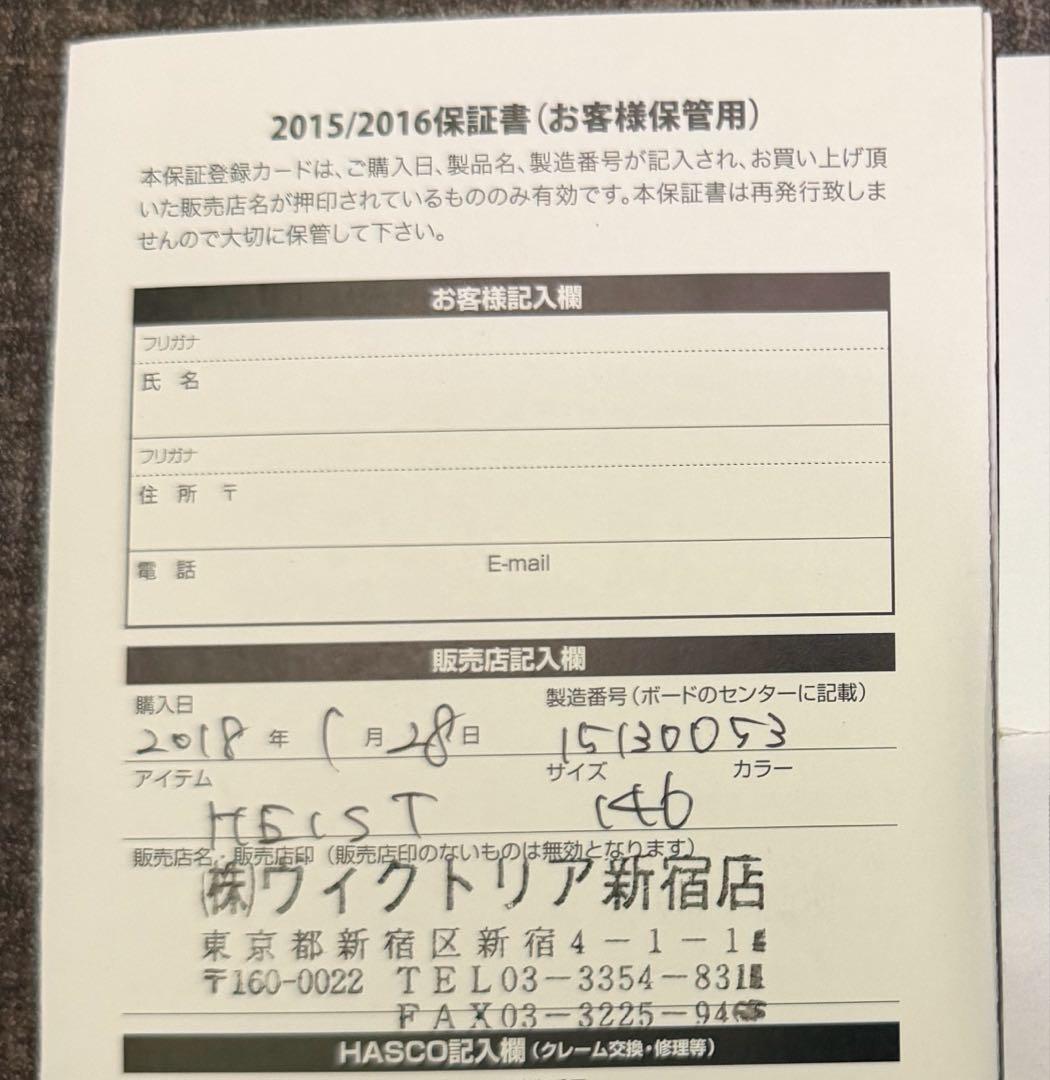 2015/2016保証書(お客様保管用)
本保証登録カードは、ご購入日、製品名、製造番号が記入され、お買い上げ頂
いた販売店名が押印されているもののみ有効です。本保証書は再発行致しま
せんので大切に保管して下さい。
お客様記入欄
フリガナ
氏 名
フリガナ
住 所 〒
電 話 E-mail
販売店記入欄
購入日 製造番号(ボードのセンターに記載)
2018年 1月28日 15130053
アイテム サイズ カラー
HEIST 146
販売店名・販売店印(販売店印のないものは無効となります)
(株)ヴィクトリア新宿店
東京都新宿区新宿4-1-1
〒160-0022 TEL03-3354-831
FAX03-3225-94
HASCO記入欄(クレーム交換・修理等)